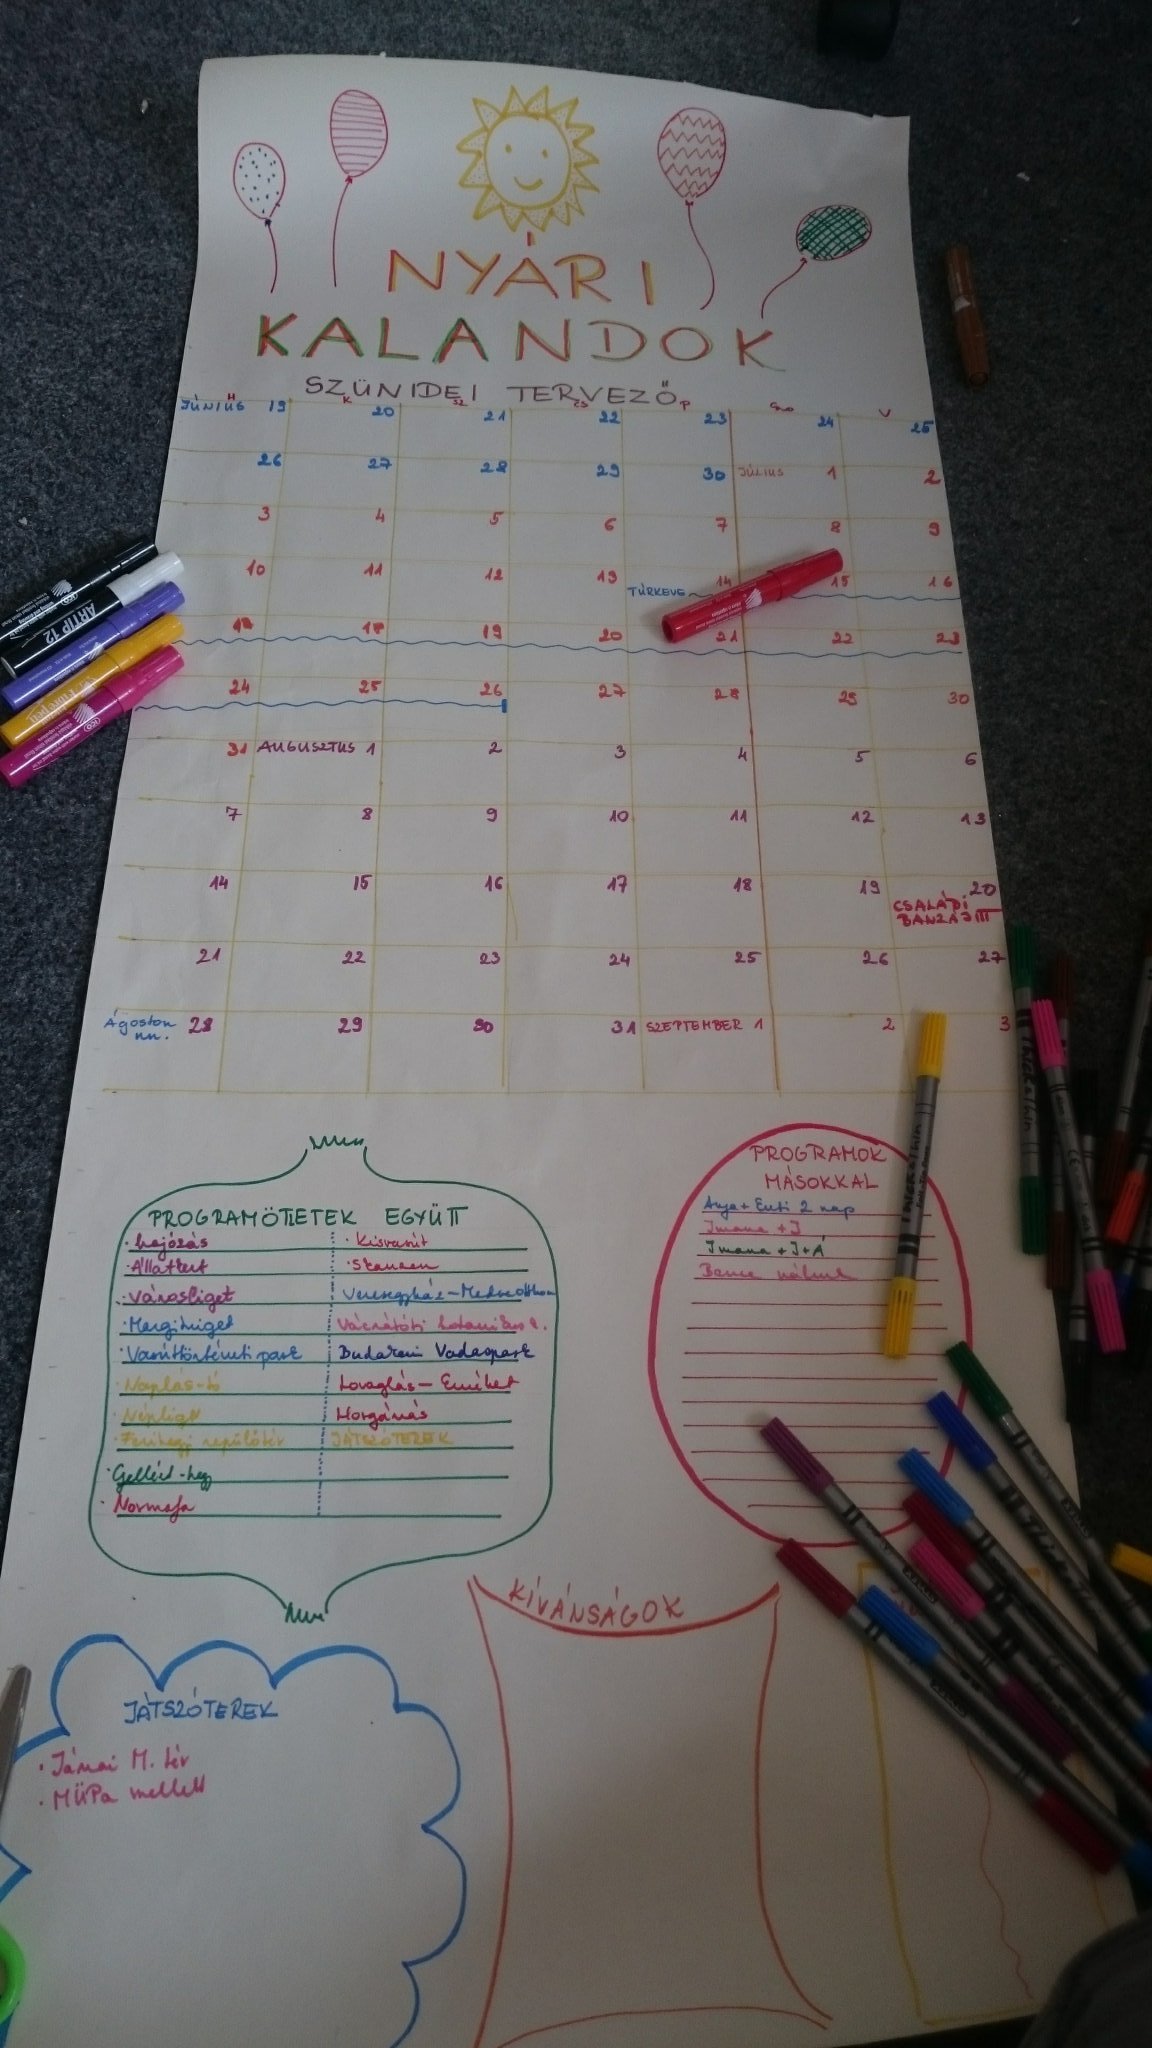 NYÁRI
KALANDOK
SZÜNIDEI TERVEZŐ
H K SZ CS P SZO V
JÚNIUS 19 20 21 22 23 24 25
26 27 28 29 30 JÚLIUS 1 2
3 4 5 6 7 8 9
10 11 12 13 14 15 16
TÚRKEVE
18 19 20 21 22 23
24 25 26 27 28 29 30
31 AUGUSZTUS 1 2 3 4 5 6
7 8 9 10 11 12 13
14 15 16 17 18 19 20
CSALÁDI
BANZÁJ!!!
21 22 23 24 25 26 27
Ágoston nn. 28 29 30 31 SZEPTEMBER 1 2 3
PROGRAMÖTLETEK EGYÜTT
· hajózás · Kisvasút
· Állatkert
· Városliget Veresegyház - Medveotthon
· Margitsziget Vácrátóti botanikus k.
· Vasúttörténeti park Budakeszi Vadaspark
· Naplás-tó Lovaglás - Emőket
· Népliget Horgázás
· Ferihegyi repülőtér JÁTSZÓTEREK
· Gellért-hegy
· Normafa
PROGRAMOK
MÁSOKKAL
Anya + Enti 2 nap
Imana + J
Imana + J + Á
Bence nálunk
JÁTSZÓTEREK
· Jászai M. tér
· MÜPa mellett
KÍVÁNSÁGOK
ARTIP 12
ICO
ICO